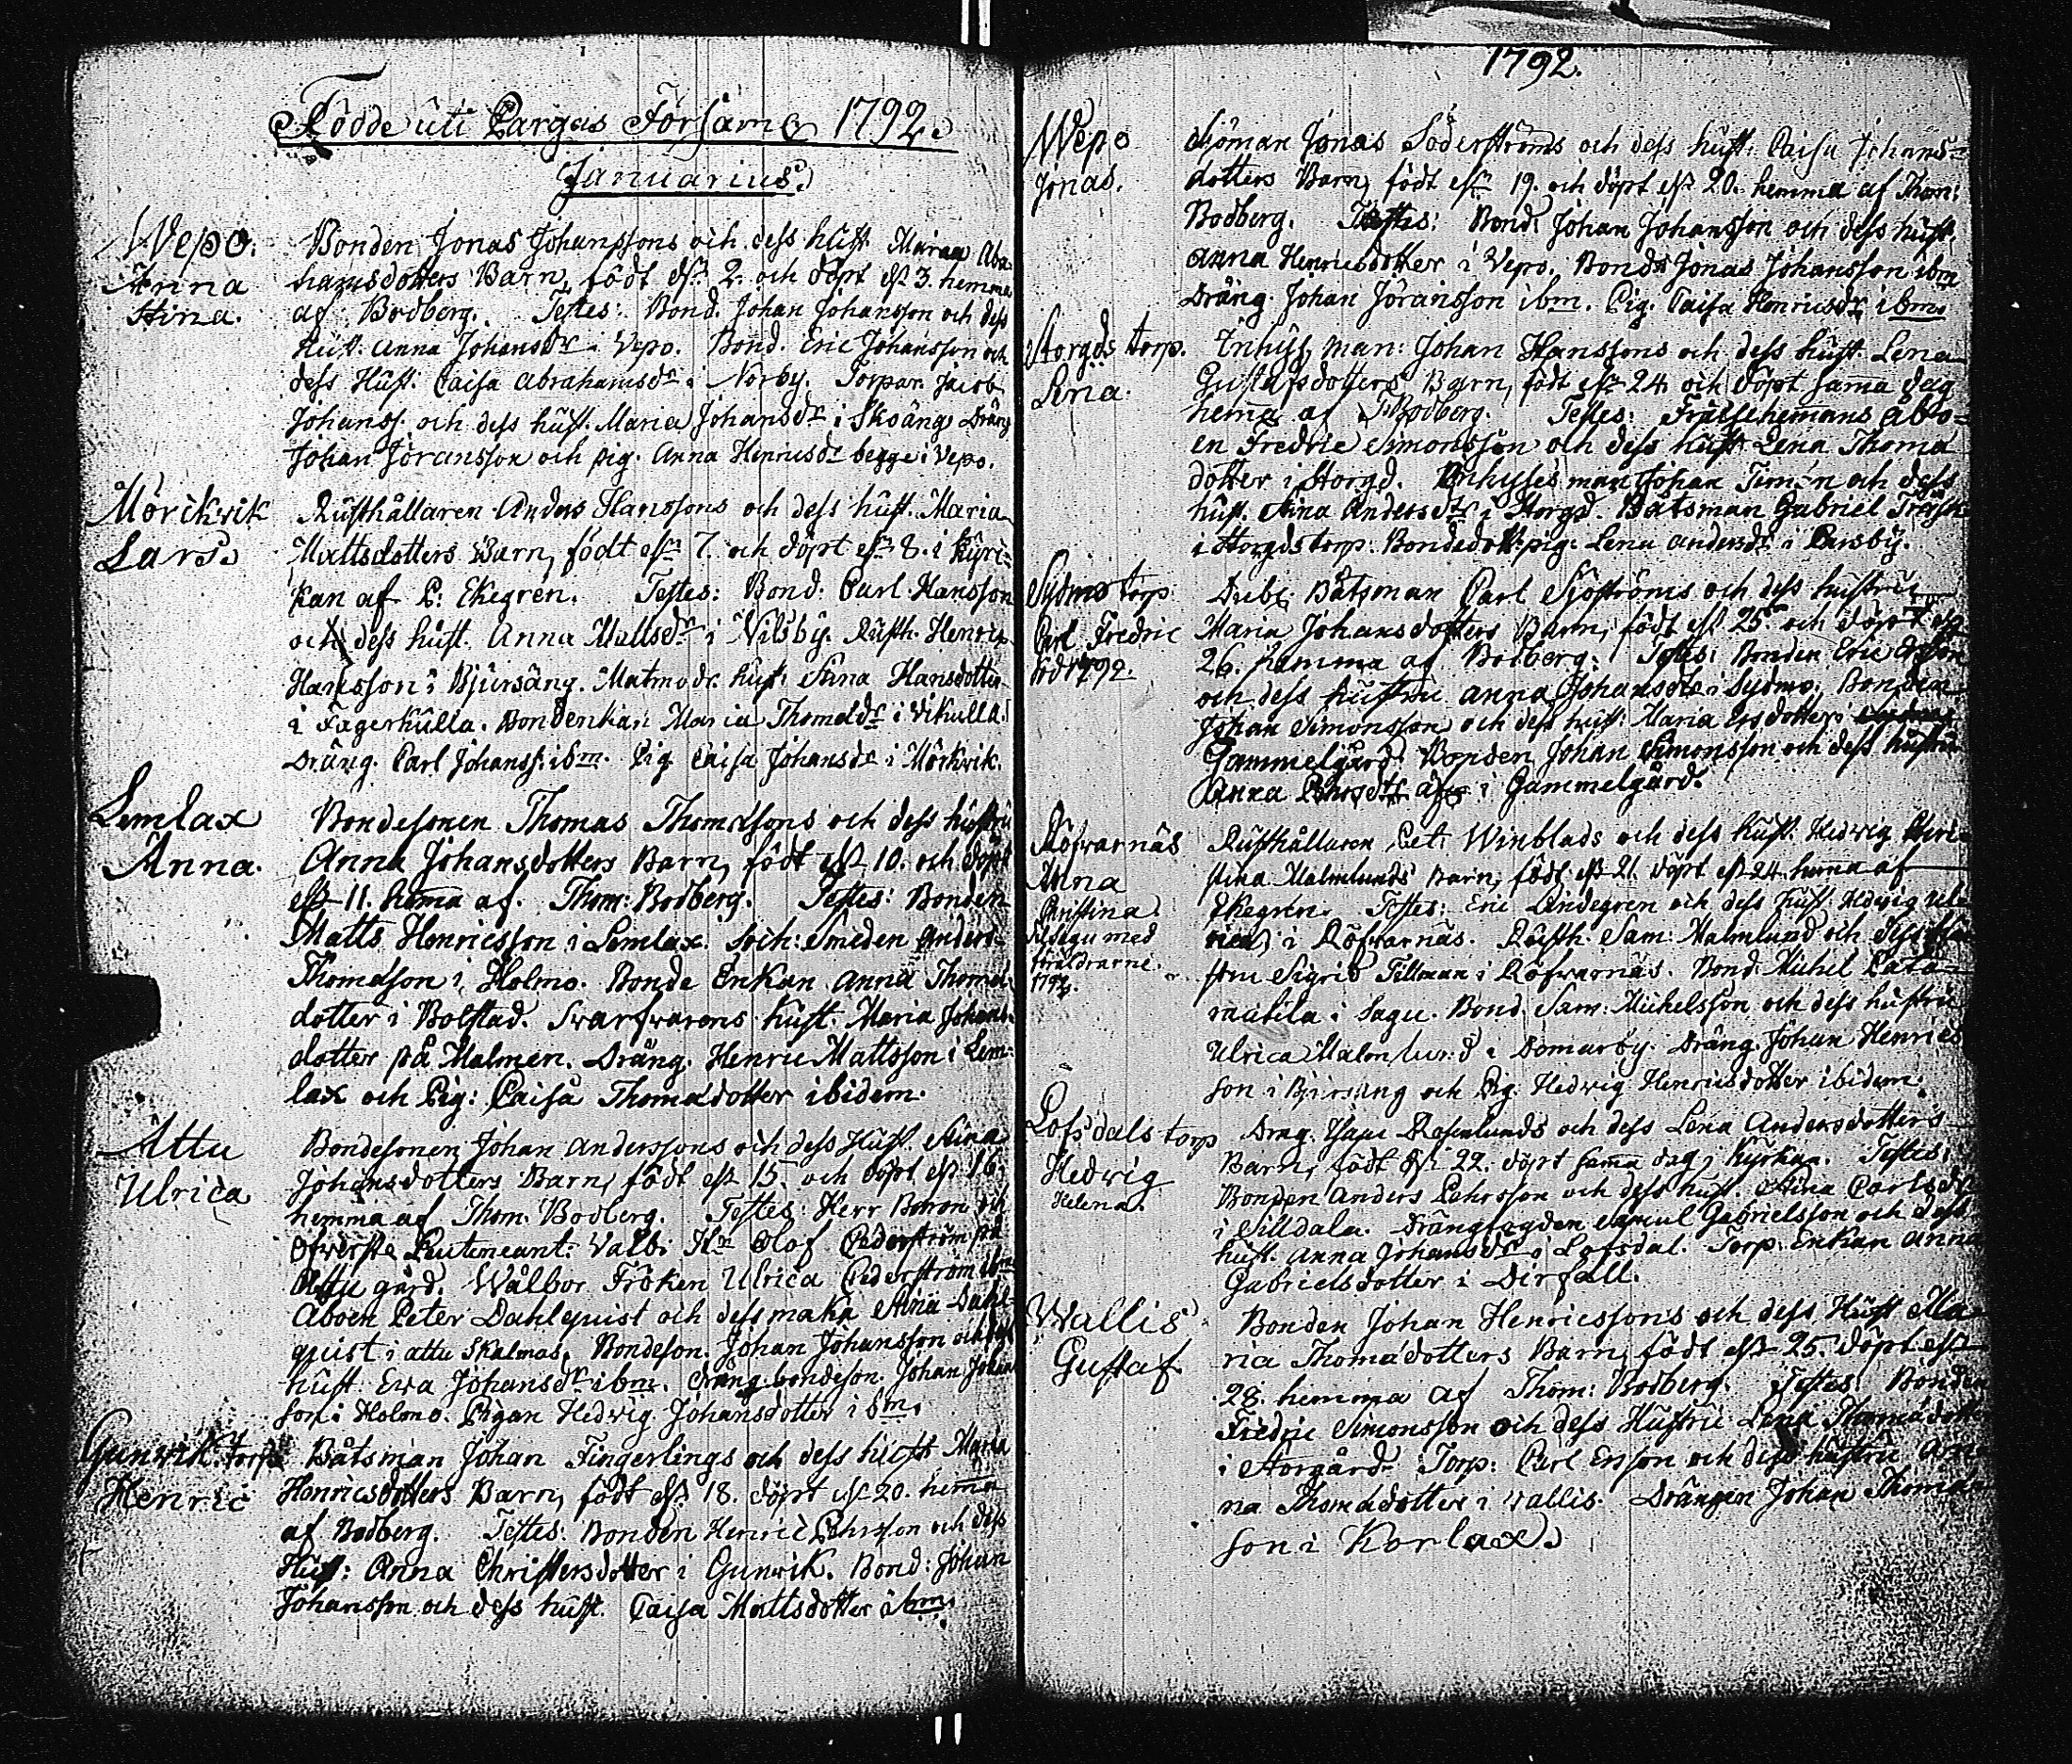 Födde uti Pargas Församl 1792.
Januarius.
Wepo.
Anna
Stina.
Bonden Jonas Johanssons och dess hust. Maria Abra
hamsdotters Barn, födt d. 2. och döpt d. 3. hemma
af Bodberg. Testes: Bond. Johan Johansson och dess
hust. Anna Johansdr i Vepo. Bond. Eric Johansson och
dess Hust. Caisa Abrahamsdr i Norby. Torpar. Jacob
Johanss. och dess hust. Maria Johansdr i Skoäng. Dräng
Johan Jöransson och pig. Anna Henricsdr begge i Vepo.
Mörckvik
Lars.
Rusthållaren Anders Hanssons och dess hust. Maria
Mattsdotters Barn, födt 7. och döpt 8. i Kyri-
kan af P. Ekegren. Testes: Bond. Carl Hansson
och dess hust. Anna Mattsdr i Vilsby. Rusth. Henric
Hansson i Bjursäng. Matmodr. hust. Stina Hansdotter
i Fagerkulla. Bondenkan Maria Thomædr i Vikulla.
Dräng. Carl Johanss. ibm. Pig. Caisa Johansdr i Mörkvik.
Lemlax
Anna.
Bondesonen Thomas Thomæsons och dess hustru
Anna Johansdotters Barn, födt 10. och döpt
11. hema af Thom: Bodberg. Testes: Bonden
Matts Henricsson i Lemlax. Soch: Smeden Anders
Thomæson i Holmo. Bonde Enkan Anna Thomæ
dotter i Bolstad. Svarfvarens hust. Maria Johans
dotter på Malmen. Dräng. Henric Mattsson i Lem-
lax och Pig: Caisa Thomædotter ibidem.
Attu
Ulrica
Bondesonen Johan Anderssons och dess Hust. Stina
Johansdotters Barn, födt 15. och döpt 16.
hemma af Thom. Bodberg. Testes: Herr Baron och
Öfverste Lieutenant: Välb: Hr Olof Cederström på
Attu gård. Wälbor Fröken Ulrica Cederström ibm
Åboen Peter Dahlquist och dess maka Stina Dahl-
quist i Attu Skalmas. Bondeson. Johan Johansson och dess
hust. Ewa Johansdr ibm. dräng. bondeson. Johan Johans
son i Holmo. Pigan Hedvig Johansdotter ibm.
Gunvik. torp
Henric
Båtsman Johan Fingerlings och dess hust. Maria
Henricsdotters Barn, födt 18. döpt 20. hemma
af Bodberg. Testes: Bonden Henric Pehrsson och dess
Hust: Anna Christersdotter i Gunvik. Bond: Johan
Johansson och dess hust. Caisa Mattsdotter ibm.
1792.
Wepo
Jonas.
Sjöman Jonas Söderströms och dess hust. Caisa Johans-
dotters Barn, födt 19. och döpt 20. hemma af Thom:
Bodberg. Testes: Bond. Johan Johansson och dess hust.
Anna Henricsdotter i Vepo. Bond. Jonas Johansson ibm
Dräng Johan Jöransson ibm. Pig. Caisa Henricsdr ibm.
Storgds torp.
Lena.
Inhys man: Johan Hanssons och dess hust. Lena
Gustafsdotters Barn, födt 24. och döpt sama dag
hema af T. Bodberg. Testes: Frälsehemans åbo-
en Fredric Simonsson och dess hust. Lena Thomæ
dotter i Storgd. Inhyses man Johan Timén och dess
hust. Stina Andersdr i Storgd. Båtsman Gabriel Träsk
i Storgdstorp. Bondedott. pig. Lena Andersdr i Parsby.
Sydmo torp
Carl Fredric
död 1792.
Dubl. Båtsman Carl Sjöströms och dess hustru
Maria Johansdotters Barn, födt 25 och döpt
26. hemma af Bodberg. Testes: Bonden Eric Ersson
och dess hustru Anna Johansdr i Sydmo. Bonden
Johan Simonsson och dess hust: Maria Ersdotter i
Gammelgård. Bonden Johan Simonsson och dess hustru
Anna i Gammelgård.
Röfvarnäs
Anna
Christina
med
föräldrarne.
Rusthållaren Pet. Winblads och dess hust. Hedvig Chri
stina Malmlunds Barn, födt 21. döpt 24. hema af
Ekegren. Testes: Eric Lindegren och dess hust. Hedvig Ul-
rica i Röfvarnäs. Rusth. Sam: Malmlund och dess hu
stru Sigrid Tillman i Röfvarnäs. Bond. Michel
i Sagu. Bond. Sam: Michelsson och dess hustru
Ulrica Malmlund i Domarby. Dräng. Johan Henrics
son i Bjursäng och Pig. Hedvig Henricsdotter ibidem.
Lofsdals torp
Hedwig
Helena.
Drag. Isaac Rosenlunds och dess Lena Andersdotters
Barn, födt 22. döpt sama dag i Kyrkan. Testes:
Bonden Anders Pehrsson och dess hust. Stina Carlsdr
i Silldala. Drängfogden Samuel Gabrielsson och dess
hust. Anna Johansdr i Lofsdal. Torp. Enkan Anna
Gabrielsdotter i Dirfall.
Wallis
Gustaf
Bonden Johan Henricssons och dess Hust Ma
ria Thomædotters Barn, födt 25. döpt
28. hemma af Thom: Bodberg. Testes: Bonden
Fredric Simonsson och dess Hustru Lena Thomædotter
i Storgård. Torp: Carl Ersson och dess hustru An
na Thomædotter i Wallis. Drängen Johan Thomæ
son i Korlax.